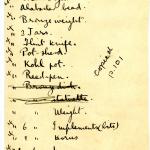 x Alabaster bead.
x Bronze weight.
x 2 Jars.
x Flint knife.
x Pot sherd.
x Kohl pot.
x Reed-pen.
Bronze disk.
" statuette
x " " Weight.
x " 6 Implements (bits)
x " 2 Horus
copied
p. 101